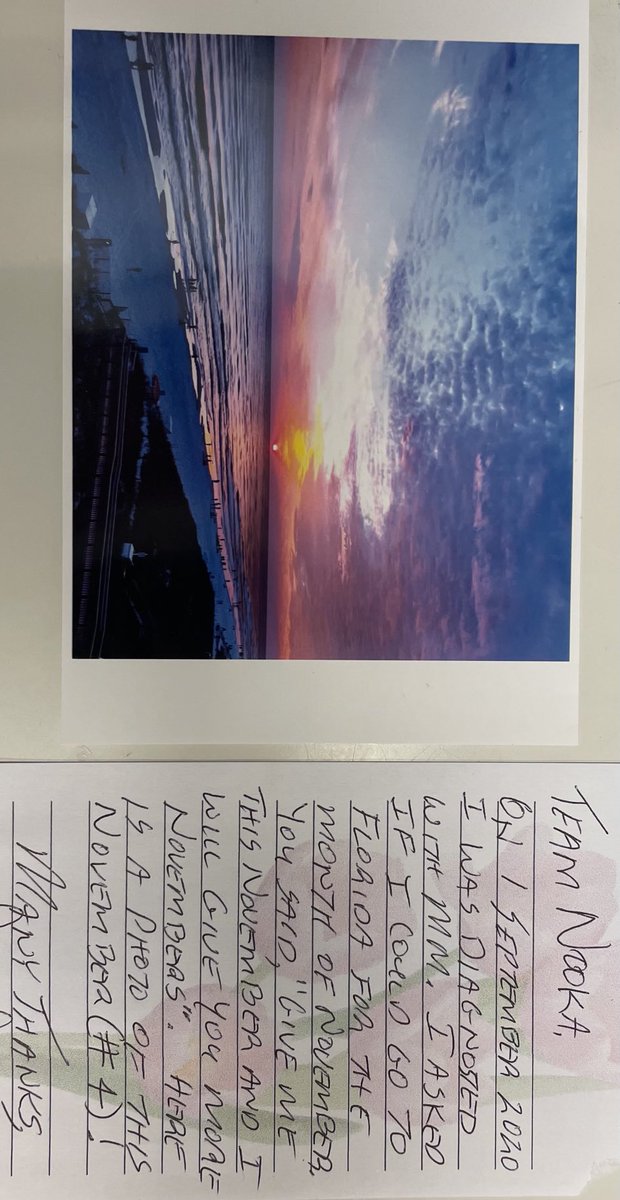 TEAM NOOKA,
ON 1 SEPTEMBER 2020
I WAS DIAGNOSTED
WITH MM. I ASKED
IF I COULD GO TO
FLORIDA FOR THE
MONTH OF NOVEMBER,
YOU SAID, "GIVE ME
THIS NOVEMBER AND I
WILL GIVE YOU MORE
NOVEMBERS". HERE
IS A PHOTO OF THIS
NOVEMBER (#4)!
MANY THANKS,